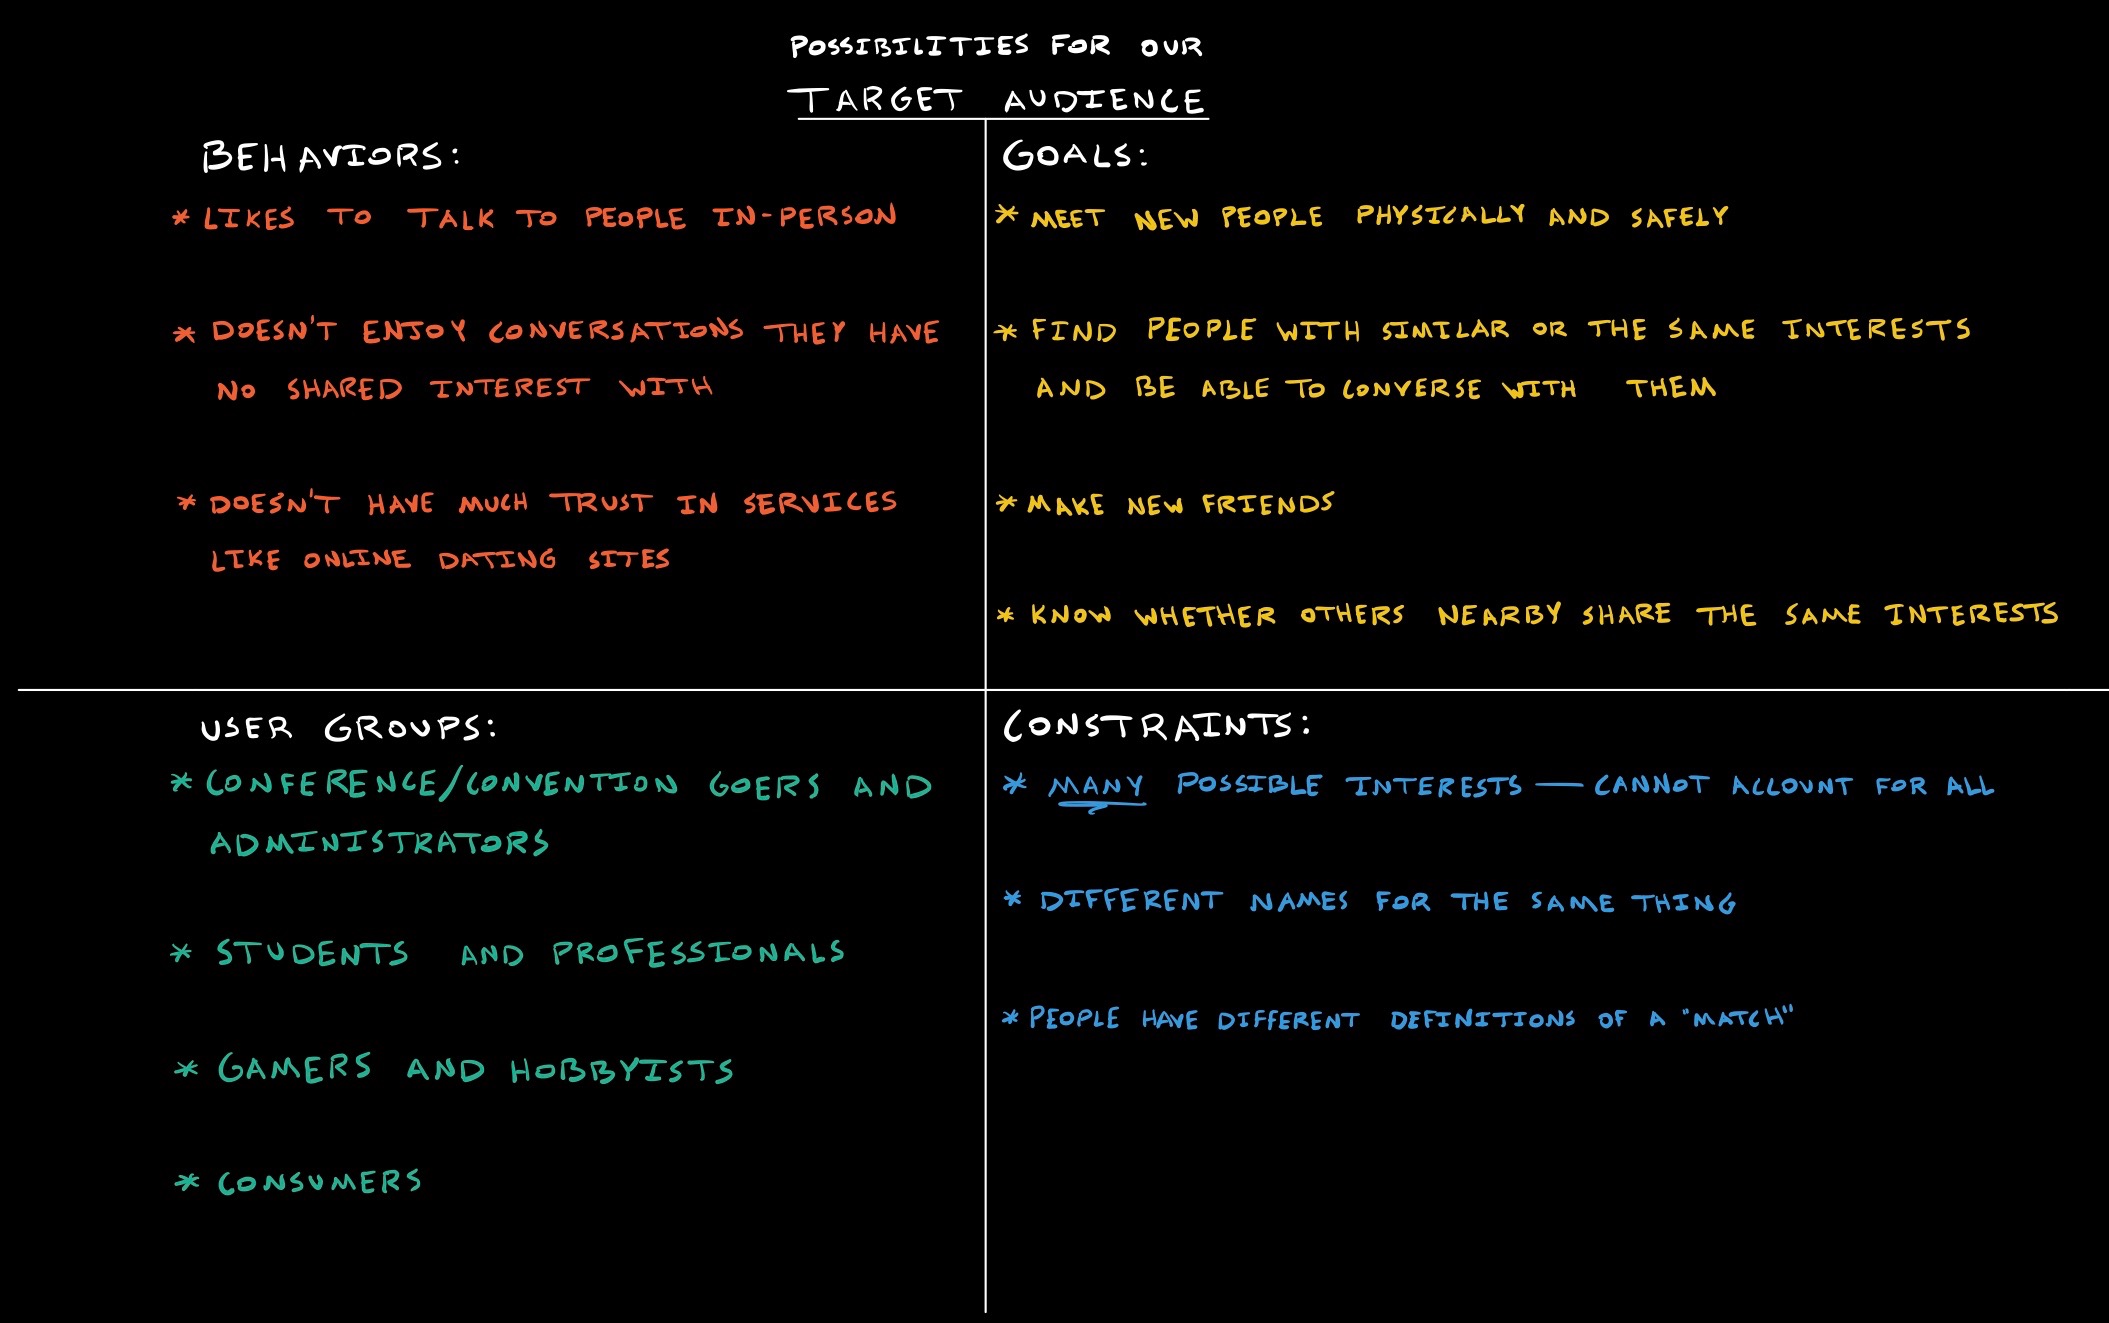 POSSIBILITIES FOR OUR
TARGET AUDIENCE
BEHAVIORS:
* LIKES TO TALK TO PEOPLE IN-PERSON
* DOESN'T ENJOY CONVERSATIONS THEY HAVE
NO SHARED INTEREST WITH
* DOESN'T HAVE MUCH TRUST IN SERVICES
LIKE ONLINE DATING SITES
GOALS:
* MEET NEW PEOPLE PHYSICALLY AND SAFELY
* FIND PEOPLE WITH SIMILAR OR THE SAME INTERESTS
AND BE ABLE TO CONVERSE WITH THEM
* MAKE NEW FRIENDS
* KNOW WHETHER OTHERS NEARBY SHARE THE SAME INTERESTS
USER GROUPS:
* CONFERENCE/CONVENTION GOERS AND
ADMINISTRATORS
* STUDENTS AND PROFESSIONALS
* GAMERS AND HOBBYISTS
* CONSUMERS
CONSTRAINTS:
* MANY POSSIBLE INTERESTS — CANNOT ACCOUNT FOR ALL
* DIFFERENT NAMES FOR THE SAME THING
* PEOPLE HAVE DIFFERENT DEFINITIONS OF A "MATCH"